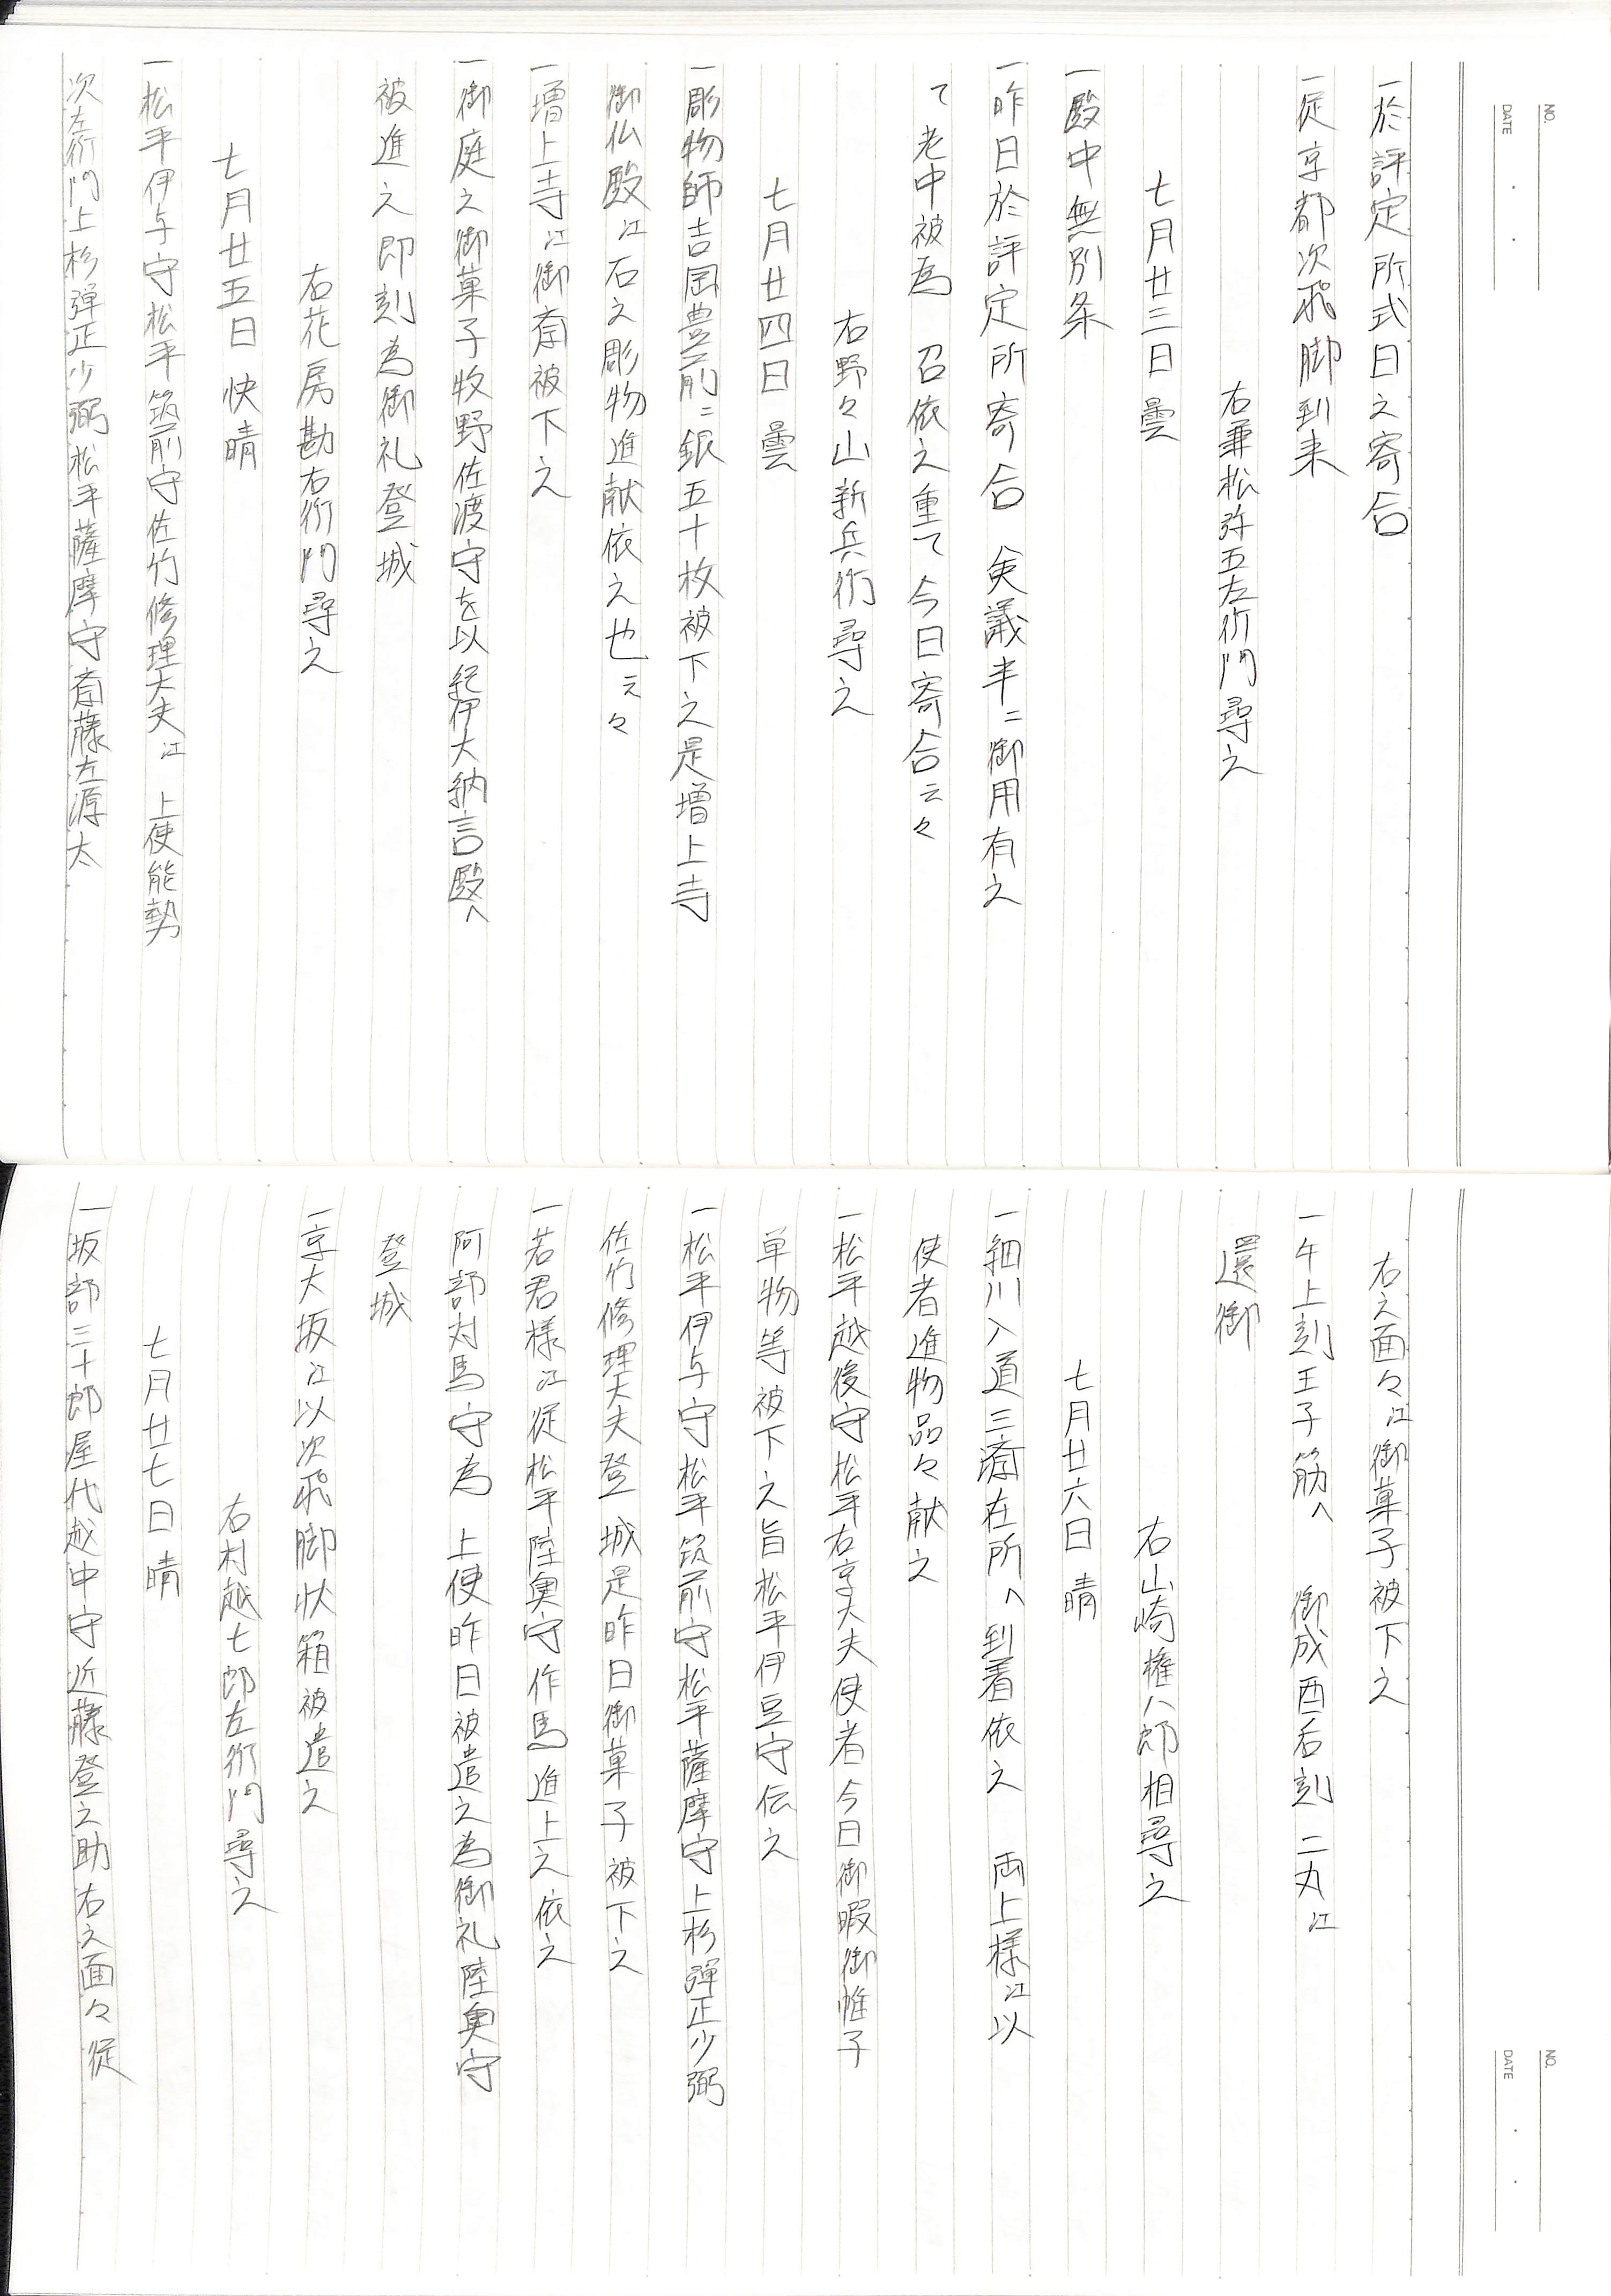 一於評定所式日之寄合
一従京都次飛脚到来
右兼松弥五左衛門尋之
七月廿三日 曇
一殿中無別条
一昨日於評定所寄合 僉議半ニ御用有之
て老中被為 召依之重て今日寄合云々
右野々山新兵衛尋之
七月廿四日 曇
一彫物師吉岡豊前ニ銀五十枚被下之是増上寺
御仏殿江石之彫物進献依之也云々
一増上寺江御斎被下之
一御庭之御菓子牧野佐渡守を以紀伊大納言殿へ
被進之即刻為御礼登城
右花房勘右衛門尋之
七月廿五日 快晴
一松平伊与守松平筑前守佐竹修理大夫江 上使能勢
次左衛門上杉弾正少弼松平薩摩守斎藤左源太
NO.
DATE
右之面々江御菓子被下之
一午上刻王子筋へ 御成酉后刻 二丸江
還御
右山崎権八郎相尋之
七月廿六日 晴
一細川入道三斎在所へ到着依之 両上様江以
使者進物品々献之
一松平越後守松平右京大夫使者今日御暇御帷子
単物等被下之旨松平伊豆守伝之
一松平伊与守松平筑前守松平薩摩守上杉弾正少弼
佐竹修理大夫登 城是昨日御菓子被下之
一若君様江従松平陸奥守作馬進上之依之
阿部対馬守為 上使昨日被遣之為御礼陸奥守
登城
一京大坂江以次飛脚状箱被遣之
右村越七郎左衛門尋之
七月廿七日 晴
一坂部三十郎屋代越中守近藤登之助右之面々従
NO.
DATE